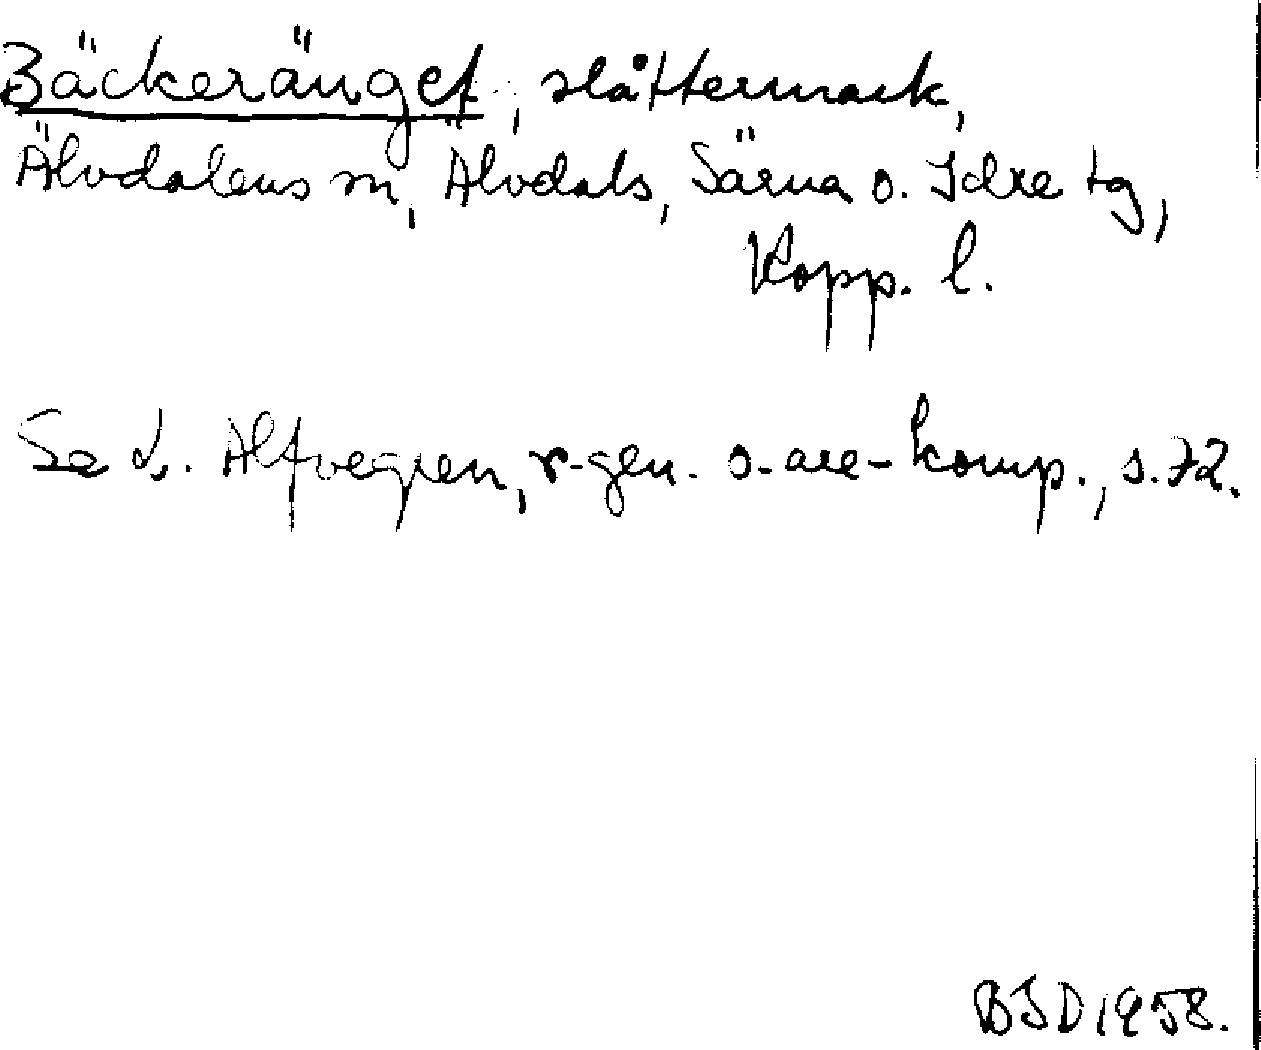 Bäckeränget, slåttermark,
Älvdalens sn, Älvdals, Särna o. Idre tg,
Kopp. l.
Se L. Alfvegren, r-gen. o. are-komp., s. 72.
BJD 1958.